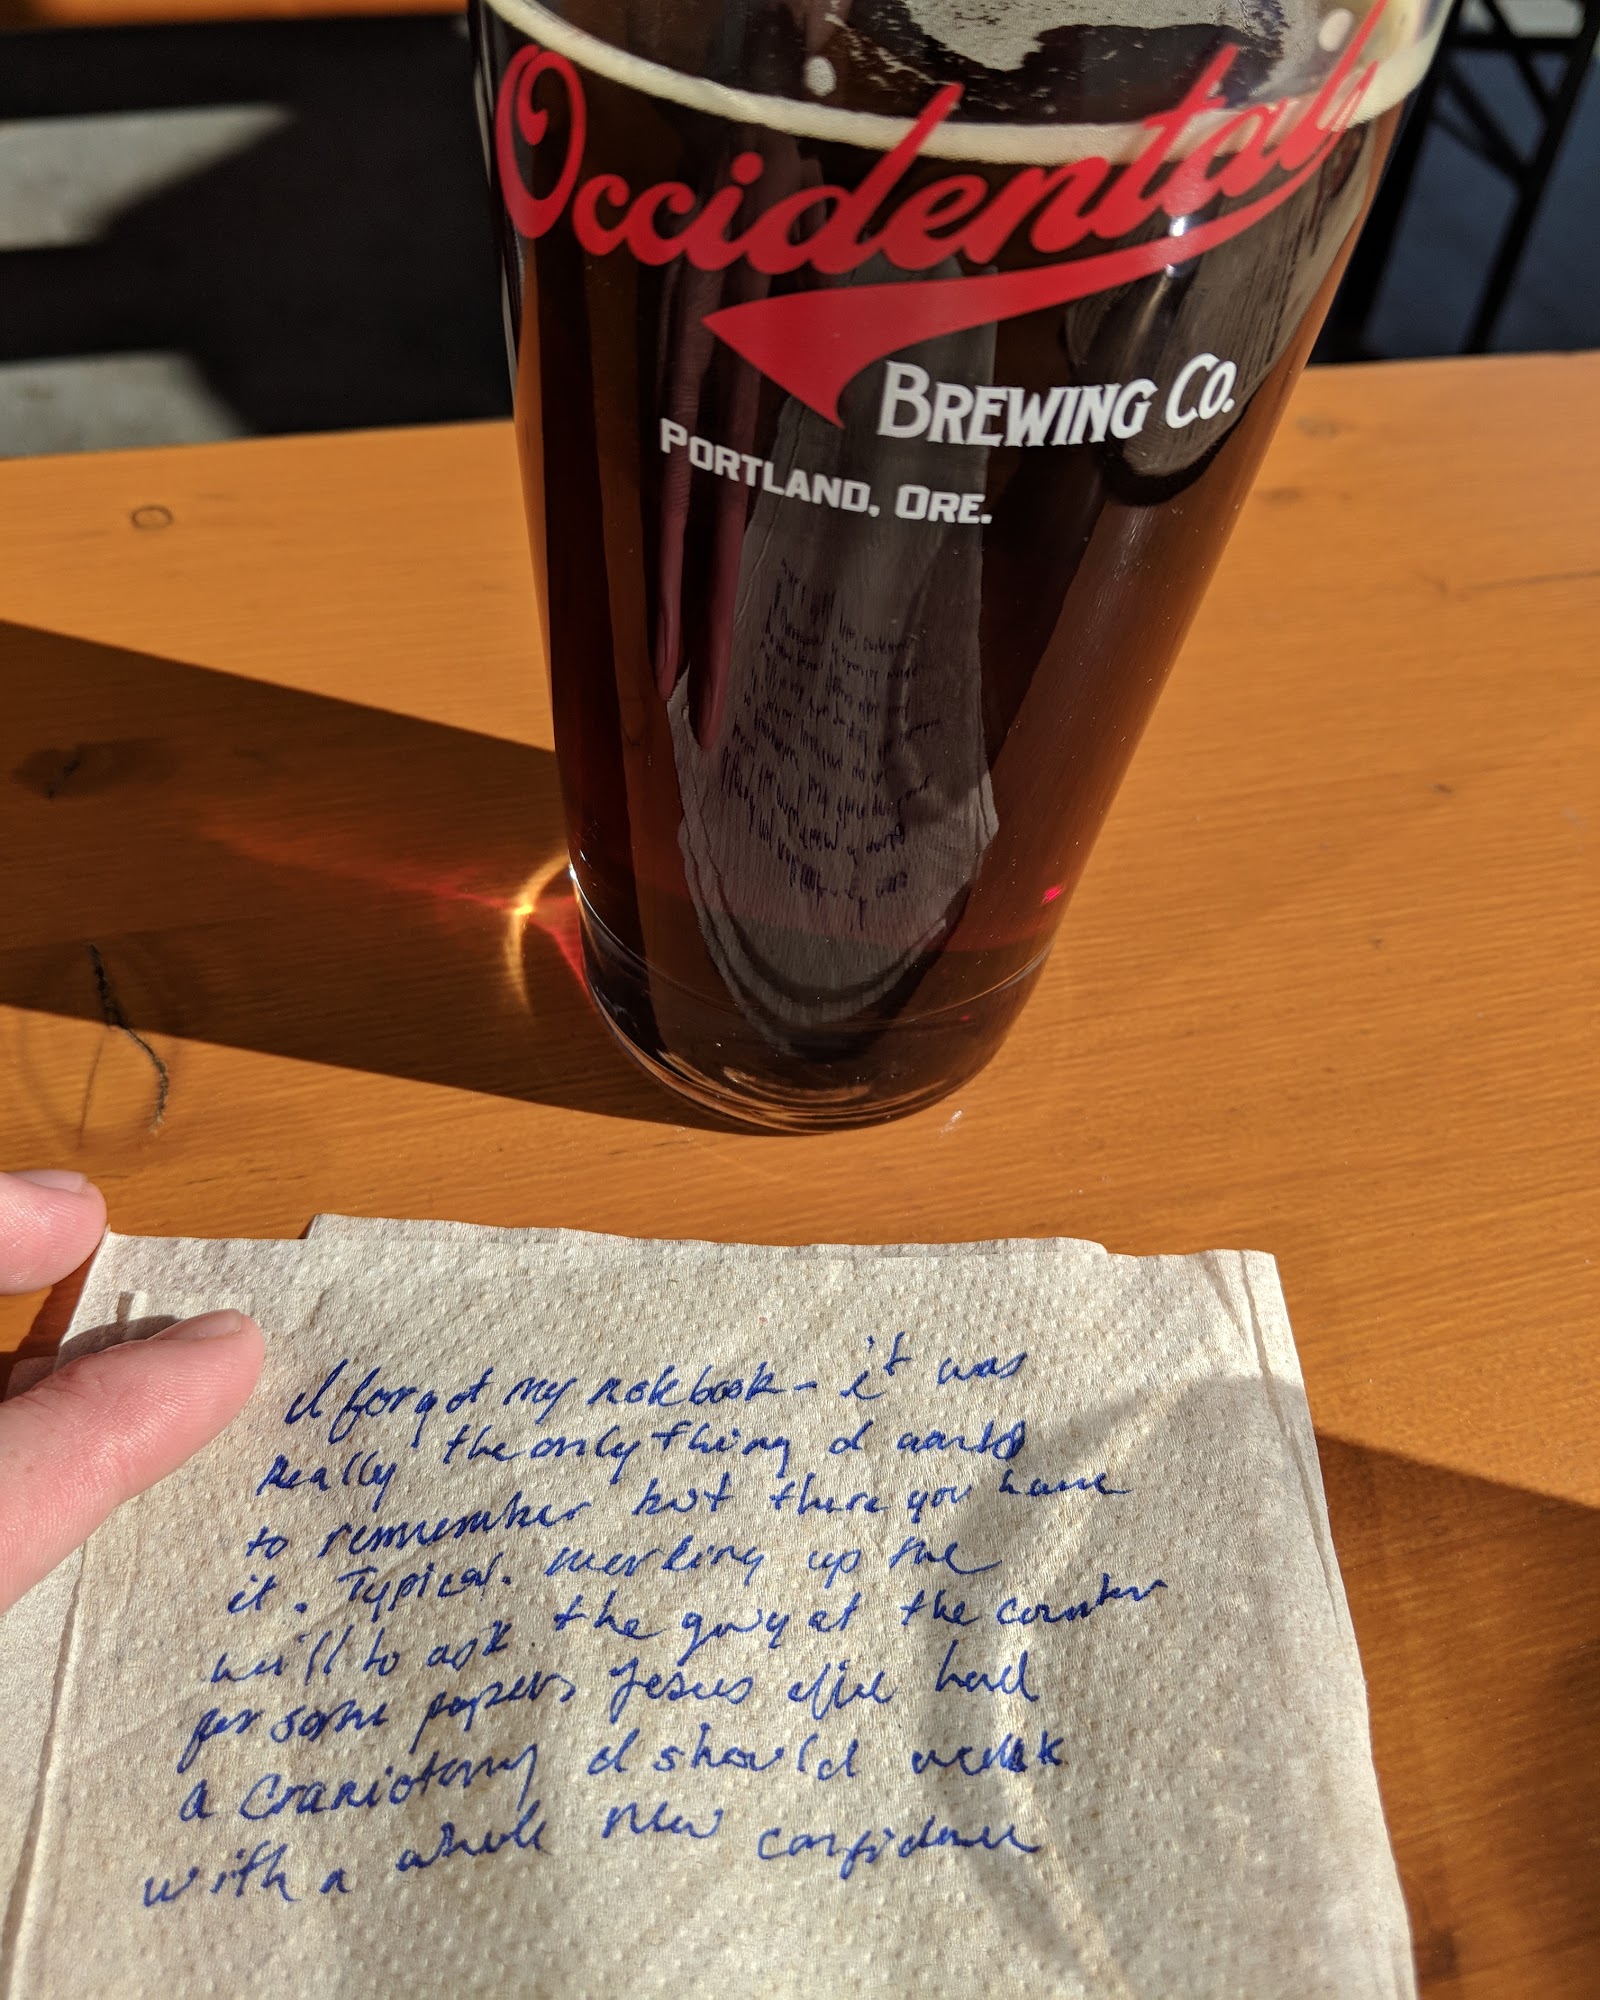 Occidental
BREWING CO.
PORTLAND, ORE.
I forgot my notebook - it was
Really the only thing I wanted
to remember but there you have
it. Typical. Working up the
will to ask the guy at the counter
for some paper, Jesus I've had
a craniotomy I should walk
with a whole new confidence